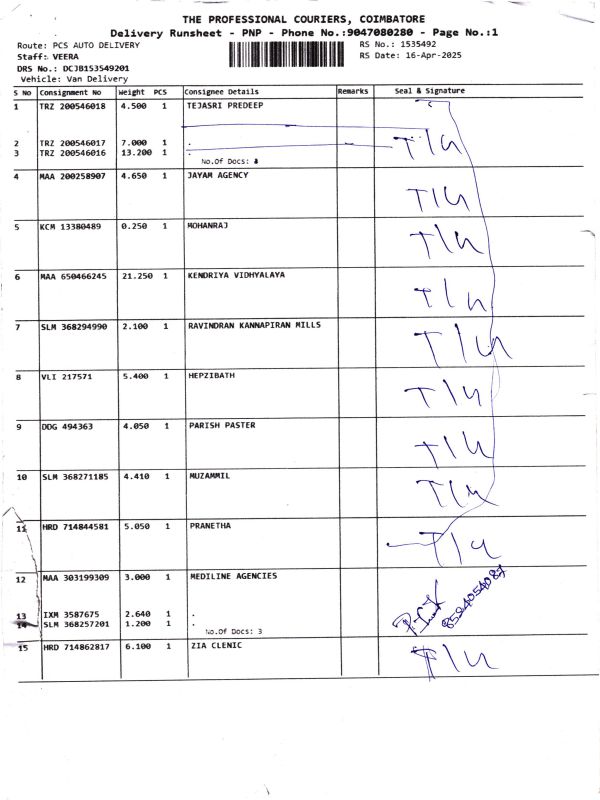 THE PROFESSIONAL COURIERS, COIMBATORE
Delivery Runsheet - PNP - Phone No.:9047080280 - Page No.:1
Route: PCS AUTO DELIVERY RS No.: 1535492
Staff: VEERA RS Date: 16-Apr-2025
DRS No.: DCJB153549201
Vehicle: Van Delivery
S No Consignment No Weight PCS Consignee Details Remarks Seal & Signature
1 TRZ 200546018 4.500 1 TEJASRI PREDEEP
2 TRZ 200546017 7.000 1 . T/u
3 TRZ 200546016 13.200 1 .
No.Of Docs:
4 MAA 200258907 4.650 1 JAYAM AGENCY T/u
5 KCM 13380489 0.250 1 MOHANRAJ T/u
6 MAA 650466245 21.250 1 KENDRIYA VIDHYALAYA T/u
7 SLM 368294990 2.100 1 RAVINDRAN KANNAPIRAN MILLS T/u
8 VLI 217571 5.400 1 HEPZIBATH T/u
9 DDG 494363 4.050 1 PARISH PASTER T/u
10 SLM 368271185 4.410 1 MUZAMMIL T/u
11 HRD 714844581 5.050 1 PRANETHA T/u
12 MAA 303199309 3.000 1 MEDILINE AGENCIES
13 IXM 3587675 2.640 1 .
14 SLM 368257201 1.200 1 .
No.Of Docs: 3
15 HRD 714862817 6.100 1 ZIA CLENIC T/u